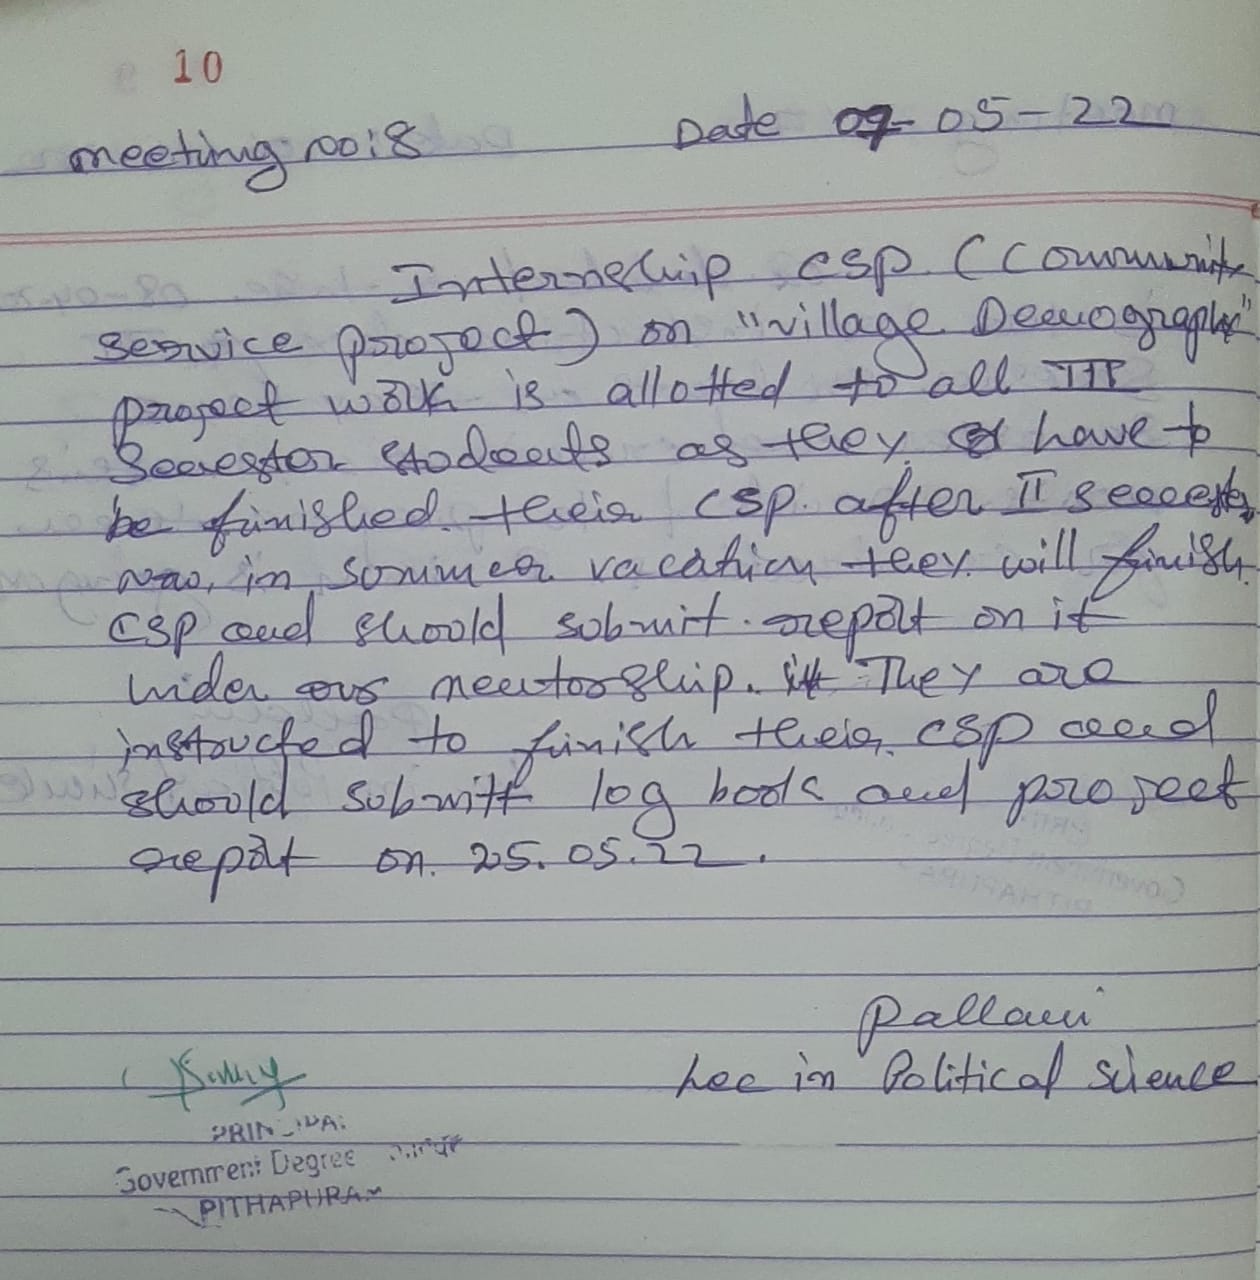 10
meeting no:8 Date 07-05-22
Internship CSP (Community
service project) on "village Demography"
project work is allotted to all III
Semester students as they have to
be finished their CSP after II semester
now, in summer vacation they will finish
CSP and should submit report on it
under our mentorship. They are
instructed to finish their CSP and
should submitt log book and project
report on 25.05.22.
Pallavi
Lec in Political science
PRINCIPAL
Government Degree
PITHAPURAM